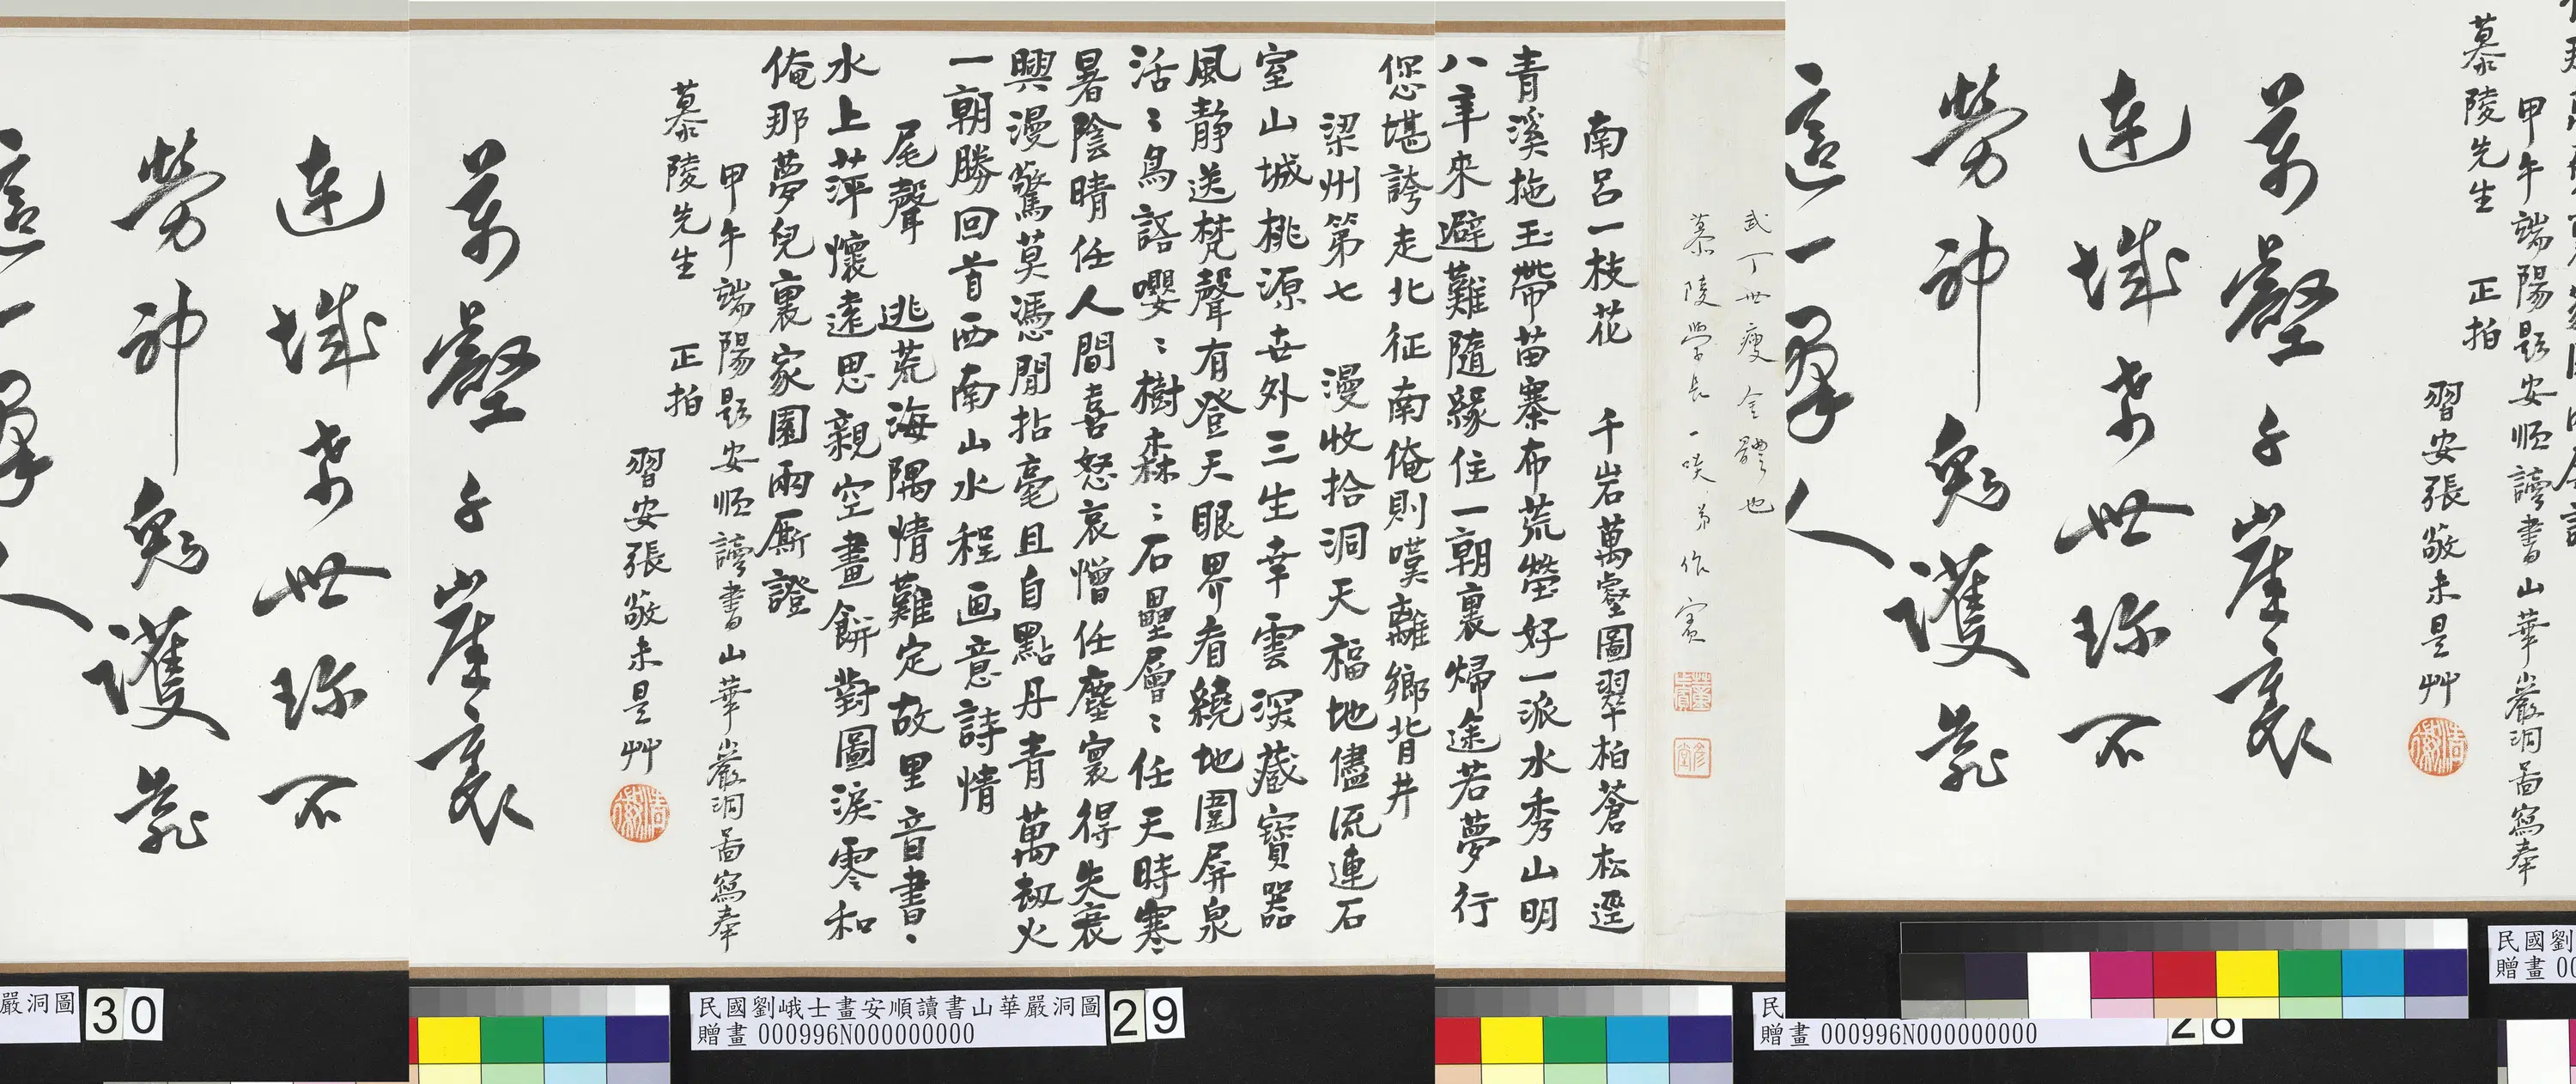 甲午端陽題安順讀書山華嚴洞啚寫奉
慕陵先生 正拍
習安張敬未是艸
萬壑千崖裏
連城希世珍不
勞神鬼護
這一群人
武丁世瘦金體也
慕陵學長一笑 弟作賓
董作賓
南呂一枝花 千岩萬壑圖翠柏蒼松逕
青溪拖玉帶苗寨布荒塋好一派水秀山明
八年來避難隨緣住一朝裏歸途若夢行
您堪誇走北征南俺則嘆離鄉背井
梁州第七 漫收拾洞天福地儘流連石
室山城桃源世外三生幸雲深藏寶器
風靜送梵聲有登天眼界看繞地圍屏泉
活〻鳥語嚶〻樹森〻石壘層〻任天時寒
暑陰晴任人間喜怒哀憎任塵寰得失衰
興漫驚莫憑閒拈毫且自點丹青萬劫火
一朝勝回首西南山水程画意詩情
尾聲 逃荒海隅情難定故里音書、
水上萍懷遠思親空畫餅對圖淚零和
俺那夢兒裏家園兩厮證
甲午端陽題安順讀書山華嚴洞啚寫奉
慕陵先生 正拍
習安張敬未是艸
萬壑千崖裏
連城希世珍不
勞神鬼護
這一群人
嚴洞圖
30
民國劉峨士畫安順讀書山華嚴洞圖
贈畫 000996N000000000
29
民
贈畫 000996N000000000
28
民國劉
贈畫 00